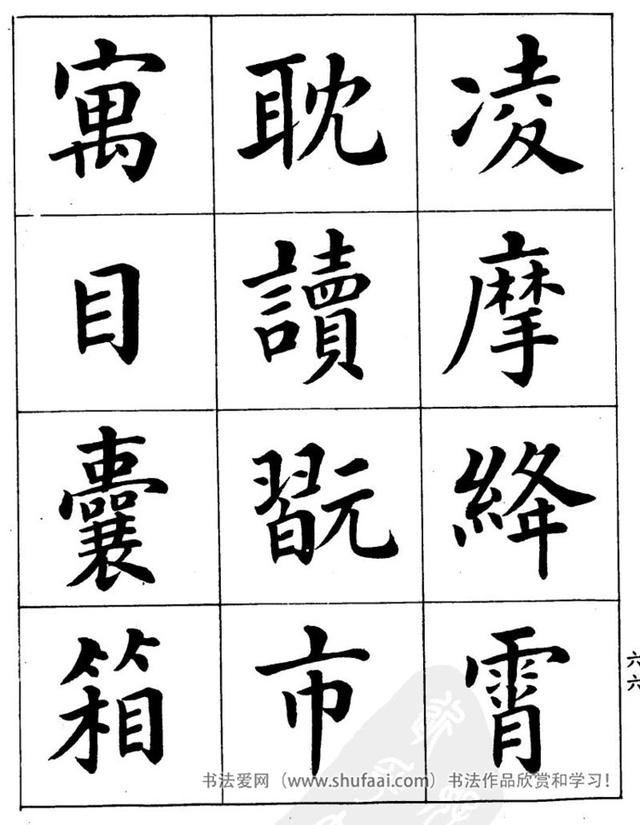 凌摩絳霄
耽讀翫市
寓目囊箱
六六
书法爱网（www.shufaai.com）书法作品欣赏和学习！